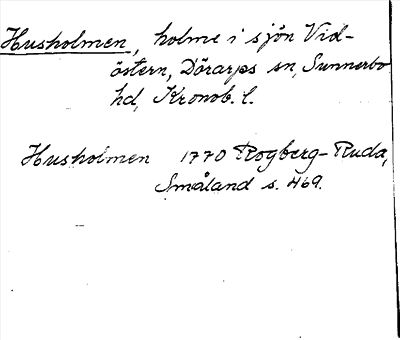 Husholmen, holme i sjön Vid-
östern, Dörarps sn, Sunnerbo
hd, Kronob. l.
Husholmen 1770 Rogberg-Ruda,
Småland s. 469.